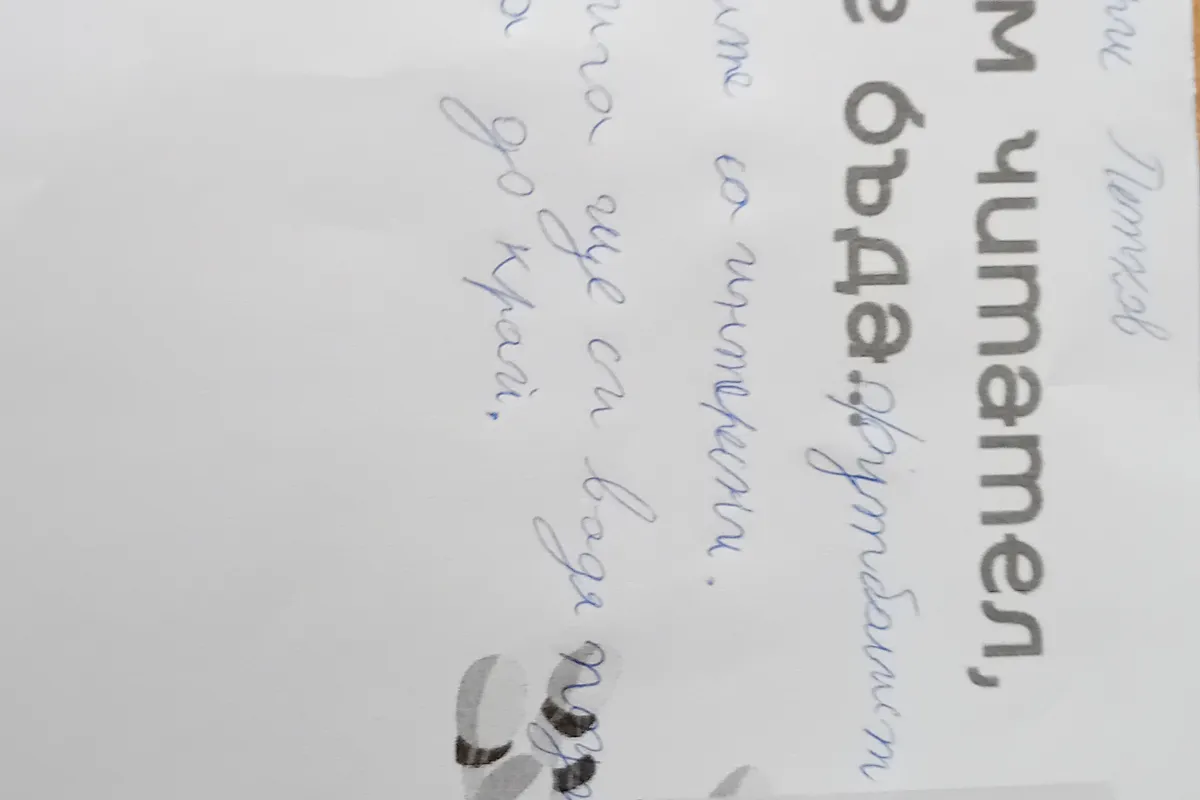 Петков
м читател,
бъда... футболист
са интересни.
ига ще си водя
до край.